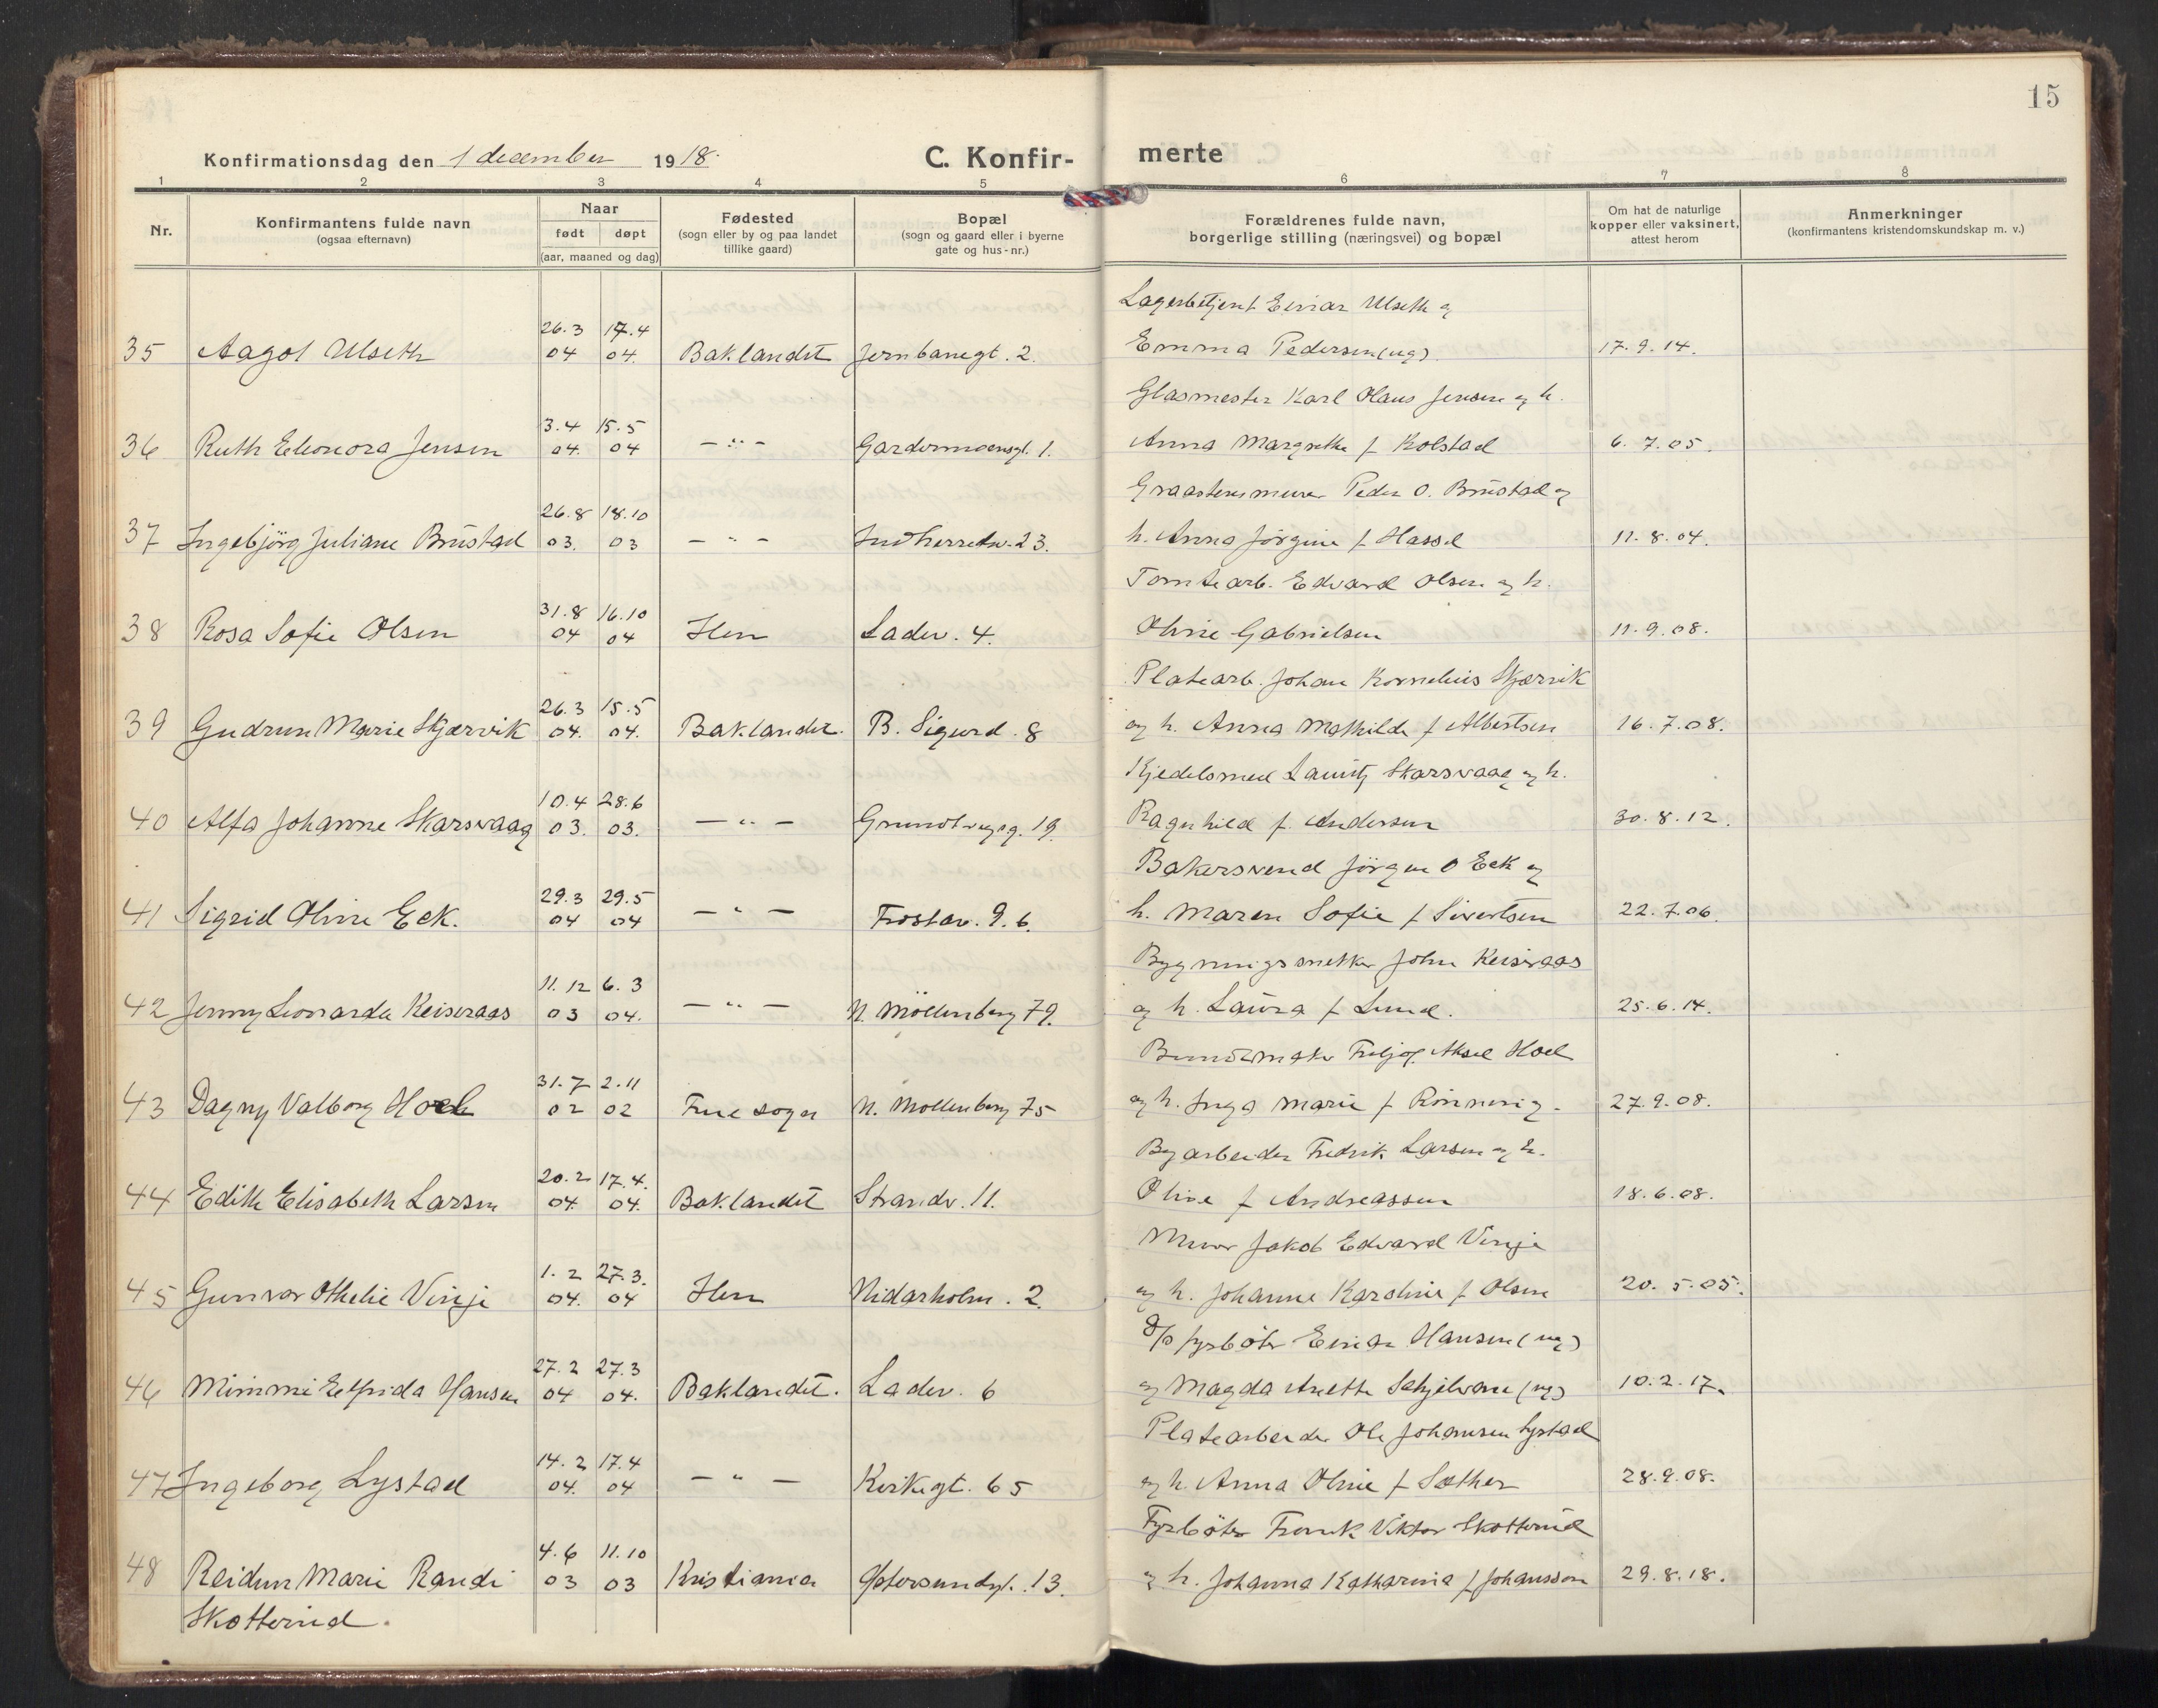 15
Konfirmationsdag den 1 december 1918.
C. Konfir-merte
1 2 3 4 5 6 7 8
Nr.
Konfirmantens fulde navn
(ogsaa efternavn)
Naar
født døpt
(aar, maaned og dag)
Fødested
(sogn eller by og paa landet
tillike gaard)
Bopæl
(sogn og gaard eller i byerne
gate og hus-nr.)
Forældrenes fulde navn,
borgerlige stilling (næringsvei) og bopæl
Om hat de naturlige
kopper eller vaksinert,
attest herom
Anmerkninger
(konfirmantens kristendomskundskap m. v.)
Lagerbetjent Einar Ulseth og
26.3 17.4
35 Aagot Ulseth 04 04. Baklandet Jernbanegt. 2. Emma Pedersen (ug) 17.9.14.
Glasmester Karl Olaus Jensen og h.
3.4 15.5
36 Ruth Eleonora Jensen 04. 04 — " — Gardermoensgt. 1. Anna Margrethe f. Kolstad 6.7.05.
Graastensmurer Peder O. Brustad og
26.8 18.10
37 Ingebjörg Juliane Brustad 03. 03 — " — Indherredsv. 23. h. Anna Jörgine f. Hassel 11.8.04.
Tomtearb. Edvard Olsen og h.
31.8 16.10
38 Rosa Sofie Olsen 04 04 Ilen Ladev. 4. Oline Gabrielsen 11.9.08.
Platearb. Johan Kornelius Skjærvik
26.3 15.5
39 Gudrun Marie Skjærvik 04. 04. Baklandet. B. Sigurd. 8 og h. Anna Mathilde f. Albertsen 16.7.08.
Kjedelsmed Lauritz Skarsvaag og h.
10.4 28.6
40 Alfa Johanne Skarsvaag 03. 03. — " — Grundtvigsg. 19. Ragnhild f. Andersen 30.8.12.
Bakersvend Jörgen O Eck og
29.3 29.5
41 Sigrid Oline Eck. 04 04 — " — Frostav. 9.6. h. Maren Sofie f. Sivertsen 22.7.06.
Bygningssnekker John Keiseraas
11.12 6.3
42 Jenny Leonarda Keiseraas 03 04. — " — N. Möllenberg 79. og h. Laura f. Lund. 25.6.14.
Fritjof Aksel Hoel
31.7 2.11
43 Dagny Valborg Hoel 02 02 Frue sogn N. Mollenberg 75 og h. Inga Marie f. Rönning. 27.9.08.
Byarbeider Fredrik Larsen og h.
20.2 17.4.
44 Edith Elisabeth Larsen 04. 04. Baklandet Strandv. 11. Oline f. Andreassen 18.6.08.
Murer Jakob Edvard Vinje
1.2 27.3.
45 Gunvor Othelie Vinje 04. 04 Ilen Nidarholm. 2. og h. Johanne Karoline f. Olsen 20.5.05.
d/s fyrböter Einar Hansen (ug)
27.2 27.3
46 Mimmi Elfrida Hansen 04 04. Baklandet. Ladev. 6 og Magda Anette Schjelvane (ug) 10.2.17.
Platearbeider Ole Johansen Lystad
14.2 17.4
47 Ingeborg Lystad 04. 04 — " — Kirkegt. 65 og h. Anna Oline f. Sæther 28.9.08.
Fyrböter Frank Viktor Skotterud
4.6 11.10
48 Reidun Marie Randi 03 03 Kristiania Østersundsgt. 13. og h. Johanna Katharina f. Johansson 29.8.18.
Skotterud.